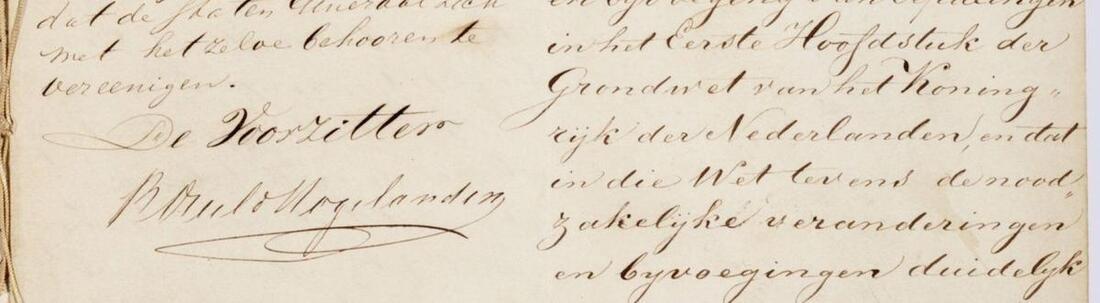 dat de Staten Generaal zich
met hetzelve behooren te
vereenigen.
De Voorzitter
en byvoeging van bepalingen
in het Eerste Hoofdstuk der
Grondwet van het Koning„
rijk der Nederlanden, en dat
in die Wet tevens de nood„
zakelijke veranderingen
en byvoegingen duidelyk